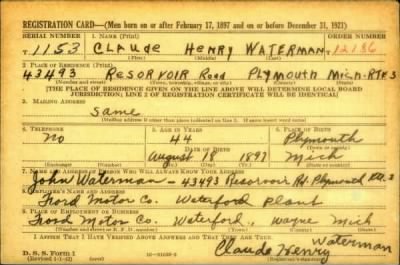 REGISTRATION CARD—(Men born on or after February 17, 1897 and on or before December 31, 1921)
SERIAL NUMBER 1. NAME (Print) ORDER NUMBER
T 1153 CLAUDE HENRY WATERMAN T 12186
(First) (Middle) (Last)
2. PLACE OF RESIDENCE (Print)
43493 RESORVOIR Road PLYMOUTH MICH-RT#3
(Number and street) (Town, township, village, or city) (County) (State)
[THE PLACE OF RESIDENCE GIVEN ON THE LINE ABOVE WILL DETERMINE LOCAL BOARD
JURISDICTION; LINE 2 OF REGISTRATION CERTIFICATE WILL BE IDENTICAL]
3. MAILING ADDRESS
Same
(Mailing address if other than place indicated on line 2. If same insert word same)
4. TELEPHONE 5. AGE IN YEARS 6. PLACE OF BIRTH
No 44 Plymouth
DATE OF BIRTH (Town or county)
August 18 1897 Mich
(Exchange) (Number) (Mo.) (Day) (Yr.) (State or country)
7. NAME AND ADDRESS OF PERSON WHO WILL ALWAYS KNOW YOUR ADDRESS
John Waterman - 43493 Reservoir Rd Plymouth
8. EMPLOYER'S NAME AND ADDRESS
Ford Motor Co. Waterford Plant
9. PLACE OF EMPLOYMENT OR BUSINESS
Ford Motor Co. Waterford, Wayne Mich
(Number and street or R. F. D. number) (Town) (County) (State)
I AFFIRM THAT I HAVE VERIFIED ABOVE ANSWERS AND THAT THEY ARE TRUE.
Claude Henry Waterman
D. S. S. Form 1
(Revised 1-1-42) (over)